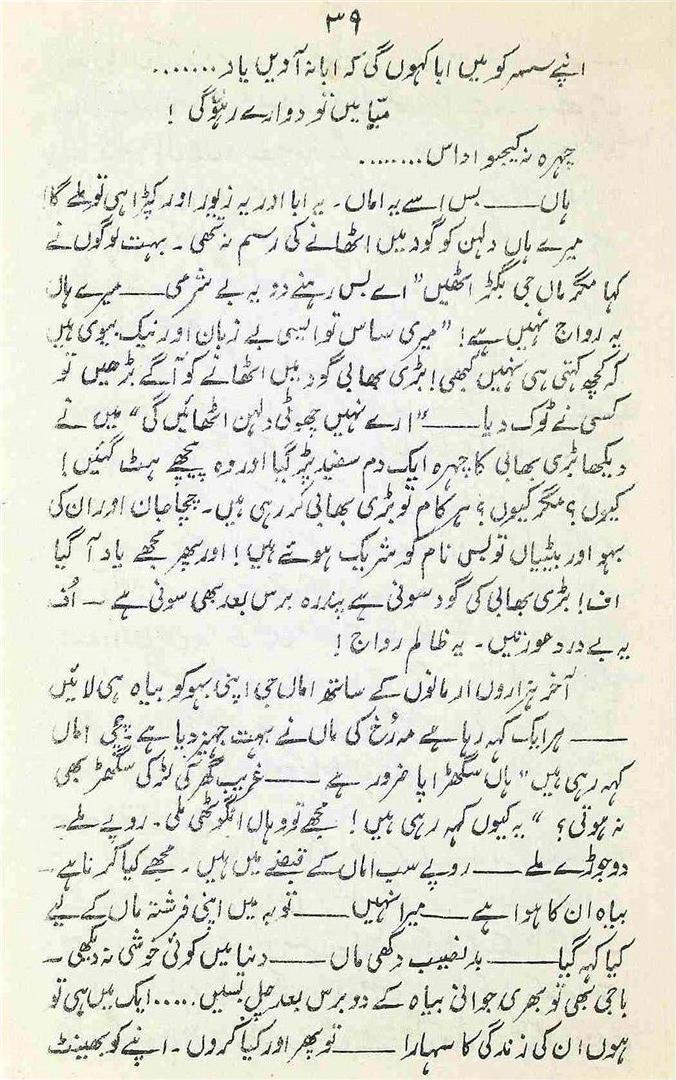 ۳۹
اپنے سسر کو میں ابا کہوں گی کہ ابا نہ آدیں یاد.......
میّا میں تو دوارے رہوں گی !
چہرہ نہ کیجیو اداس........
ہاں — بس اسے یہ اماں۔ یہ ابا اور یہ زیور اور کپڑا ہی تو ملے گا!
میرے ہاں دلہن کو گود میں اٹھانے کی رسم نہ تھی۔ بہت لوگوں نے
کہا مگر ماں جی بگڑ اٹھیں ”اے بس رہنے دو یہ بے شرمی — میرے ہاں
یہ رواج نہیں ہے! “ میری ساس تو ایسی بے زبان اور نیک بیوی ہیں
کہ کچھ کہتی ہی نہیں کبھی! بڑی بھابی گود میں اٹھانے کو آگے بڑھیں تو
کسی نے ٹوک دیا — ”ارے نہیں چھوٹی دلہن اٹھائیں گی“ میں نے
دیکھا بڑی بھابی کا چہرہ ایک دم سفید پڑ گیا اور وہ پیچھے ہٹ گئیں!
کیوں؟ مگر کیوں؟ ہر کام تو بڑی بھابی کر رہی ہیں۔ چچا جان اور ان کی
بہو اور بیٹیاں تو بس نام کو شریک ہوئے ہیں! اور پھر مجھے یاد آ گیا
اف! بڑی بھابی کی گود سونی ہے پندرہ برس بعد بھی سونی ہے — اُف
یہ بے درد عورتیں۔ یہ ظالم رواج!
آخر ہزاروں ارمانوں کے ساتھ اماں جی اپنی بہو کو بیاہ ہی لائیں
— ہر ایک کہہ رہا ہے مہ رُخ کی ماں نے بہت جہیز دیا ہے چچی اماں
کہہ رہی ہیں ”ہاں سگھڑاپا ضرور ہے — غریب گھر کی لڑکی سگھڑ بھی
نہ ہوتی؟ “ یہ کیوں کہہ رہی ہیں! مجھے تو وہاں انگوٹھی ملی۔ روپے ملے۔
دو جوڑے ملے — روپے سب اماں کے قبضے میں ہیں۔ مجھے کیا کرنا ہے۔
بیاہ ان کا ہوا ہے — میرا نہیں — توبہ میں اپنی فرشتہ ماں کے لیے
کیا کہہ گیا — بدنصیب دکھی ماں — دنیا میں کوئی خوشی نہ دیکھی۔
باجی بھی تو بھری جوانی بیاہ کے دو برس بعد چل بسیں..... ایک میں ہی تو
ہوں ان کی زندگی کا سہارا — تو پھر اور کیا کروں۔ اپنے کو بھینٹ